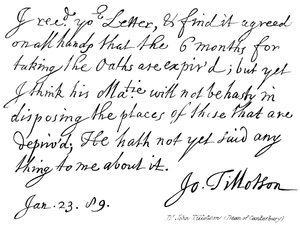 J recd. yor. Letter, & find it agreed
on all hands that the 6 months for
taking the Oaths are expir'd; but yet
I think his Matie. will not be hasty in
disposing the places of those that are
depriv'd, He hath not yet said any
thing to me about it.
Jo. Tillotson
Jan. 23. 89.
Dr. John Tillotson (Dean of Canterbury)